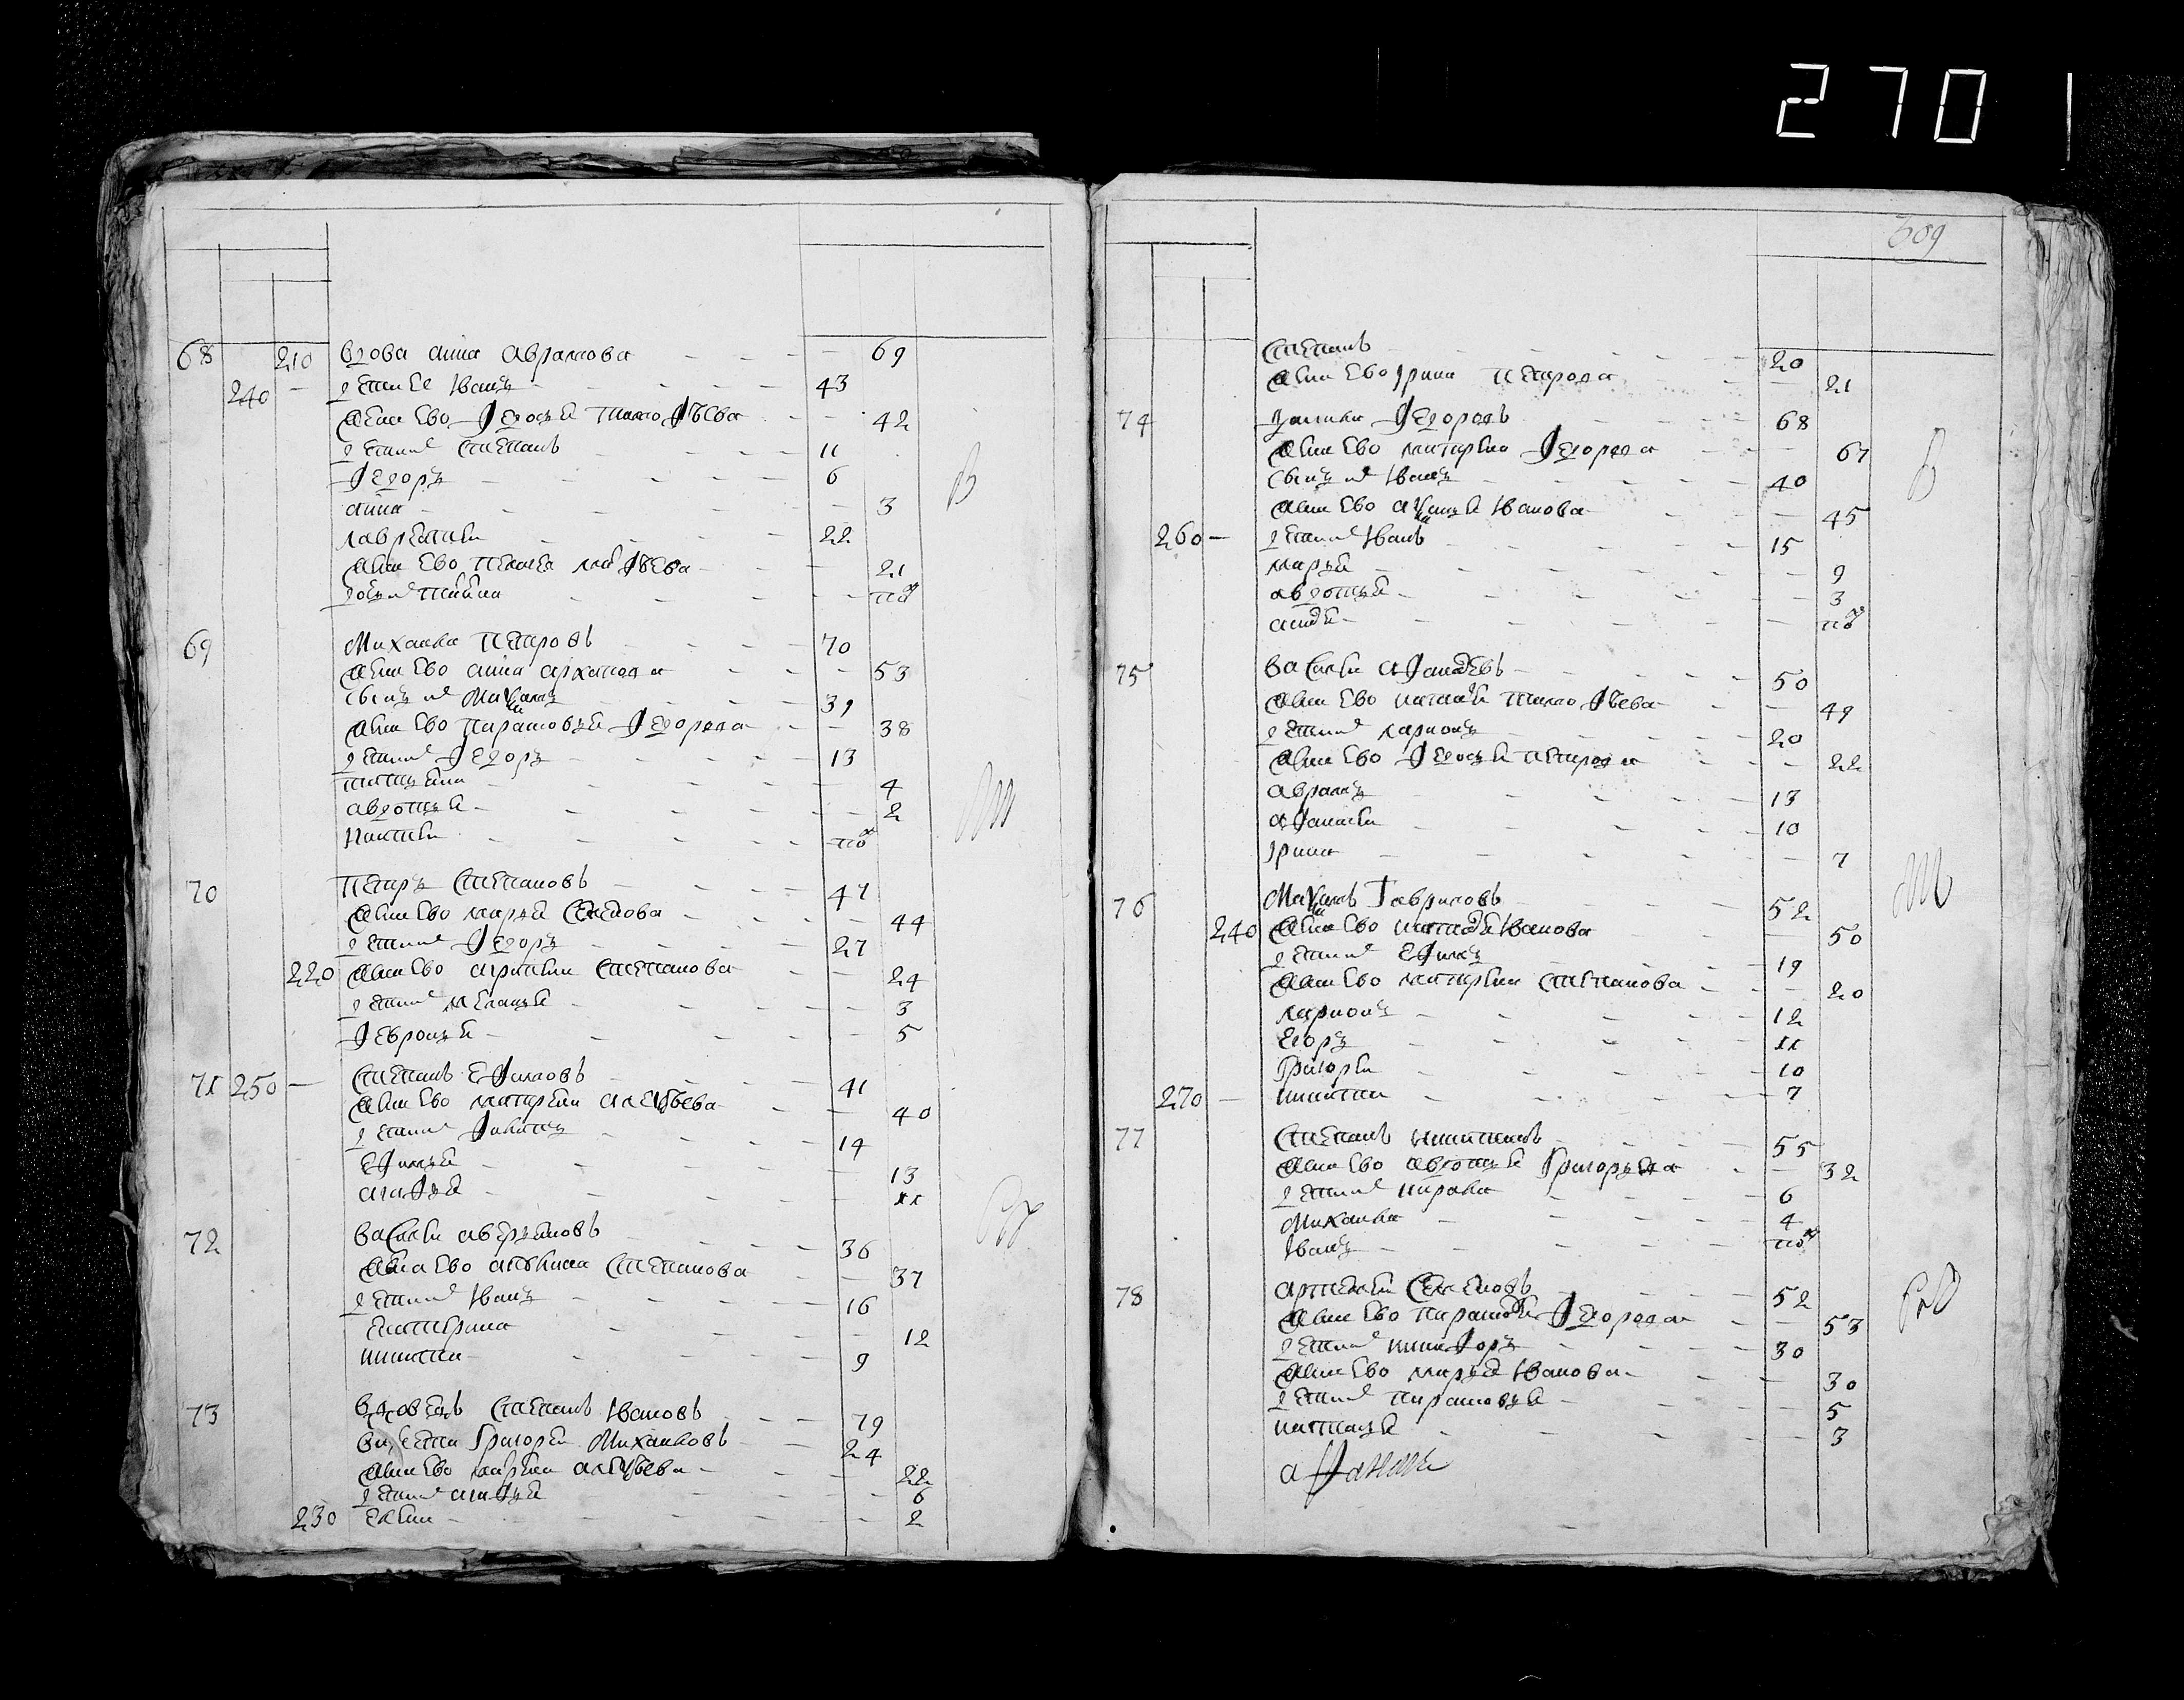 270
309
68 210 вдова анна аврамова 69
240 дети ее Иванъ 43
жена ево Федосья тимофѣева 42
дети Степанъ 11
Федоръ 6
анна 3
лаврентей 22
жена ево пелагея матфѣева 21
69 Михаила Петровъ 70
жена ево анна архипова 53
сынъ их Михаилъ 39
жена ево парасковья Федорова 38
дети Федоръ 13
татьяна 4
авдотья 2
70 Петръ Степановъ 47
жена ево марья Семенова 44
дети Федоръ 27
220 жена ево аграфена Степанова 24
дети меланья 3
Февронья 5
71 250 Степанъ Ефимовъ 41
жена ево матрена алексѣева 40
дети Филипъ 14
Ефимья 13
агафья 11
72 Василей аверьяновъ 36
жена ево Степанова 37
дети Иванъ 16
катерина 12
никита 9
73 вдовецъ Степанъ Ивановъ 79
Григорей Михаиловъ 24
жена ево марья алексѣева 22
дети агафья 6
230 елена 2
Степанъ 20
жена ево Ирина Петрова 21
74 Данила Федоровъ 68
жена ево матрена Федорова 67
сынъ их Иванъ 40
жена ево акулина Иванова 45
260 дети Иванъ 15
марья 9
авдотья 3
75 Василей афанасьевъ 50
жена ево наталья тимофѣева 49
дети ларионъ 20
жена ево Федосья Петрова 22
аврамъ 13
афанасей 10
Ирина 7
76 Михаилъ Гавриловъ 52
240 жена ево наталья Иванова 50
дети Ефимъ 19
жена ево матрена Степанова 20
ларионъ 12
Егоръ 11
Григорей 10
270 никита 7
77 Степанъ никитинъ 55
жена ево авдотья Григорьева 32
дети кирила 6
Михаила 4
Иванъ
78 артемей Семеновъ 52
жена ево парасковья Федорова 53
дети никифоръ 30
жена ево марья Иванова 30
дети парасковья 5
наталья 3